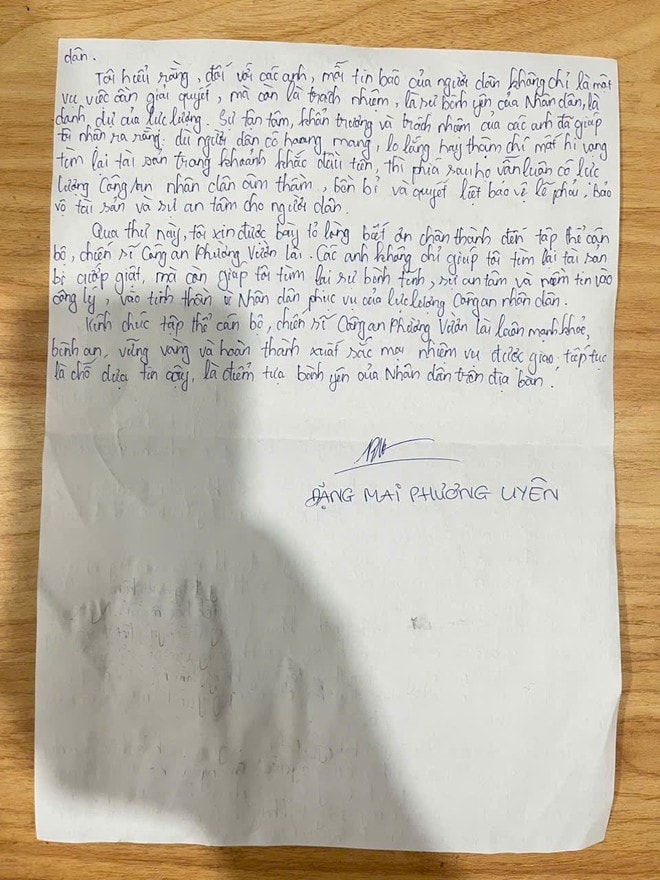 dân.
Tôi hiểu rằng, đối với các anh, mỗi tin báo của người dân không chỉ là một
vụ việc cần giải quyết, mà còn là trách nhiệm, là sự bình yên của Nhân dân, là
danh dự của lực lượng. Sự tận tâm, khẩn trương và trách nhiệm của các anh đã giúp
tôi nhận ra rằng: dù người dân có hoang mang, lo lắng hay thậm chí mất hi vọng
tìm lại tài sản trong khoảnh khắc đầu tiên, thì phía sau họ vẫn luôn có lực
lượng Công an nhân dân âm thầm, bền bỉ và quyết liệt bảo vệ lẽ phải, bảo
vệ tài sản và sự an tâm cho người dân.
Qua thư này, tôi xin được bày tỏ lòng biết ơn chân thành đến tập thể cán
bộ, chiến sĩ Công an Phường Vườn Lài. Các anh không chỉ giúp tôi tìm lại tài sản
bị cướp giật, mà còn giúp tôi tìm lại sự bình tĩnh, sự an tâm và niềm tin vào
công lý, vào tinh thần vì Nhân dân phục vụ của lực lượng Công an nhân dân.
Kính chúc tập thể cán bộ, chiến sĩ Công an Phường Vườn Lài luôn mạnh khỏe,
bình an, vững vàng và hoàn thành xuất sắc mọi nhiệm vụ được giao, tiếp tục
là chỗ dựa tin cậy, là điểm tựa bình yên của Nhân dân trên địa bàn.
ĐẶNG MAI PHƯƠNG UYÊN